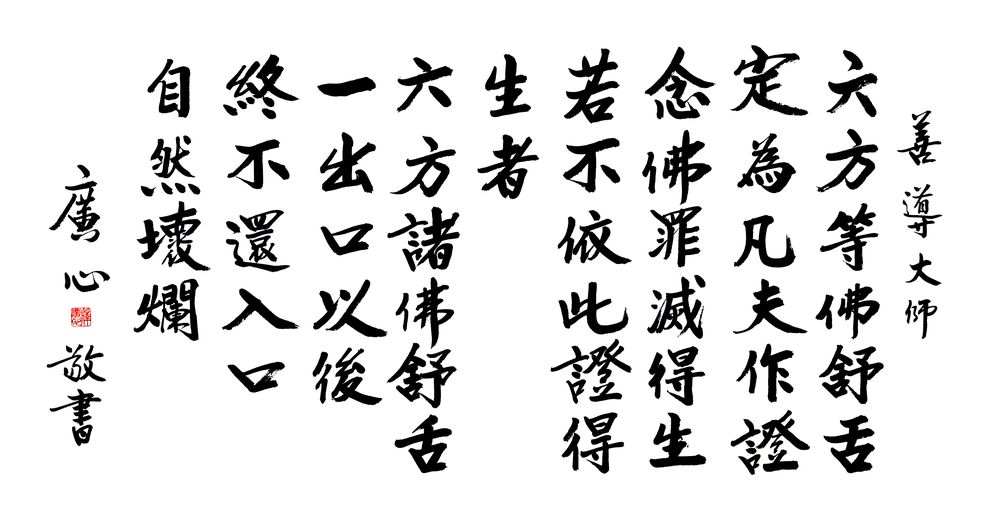 善導大師
六方等佛舒舌
定為凡夫作證
念佛罪滅得生
若不依此證得
生者
六方諸佛舒舌
一出口以後
終不還入口
自然壞爛
廣心
敬書